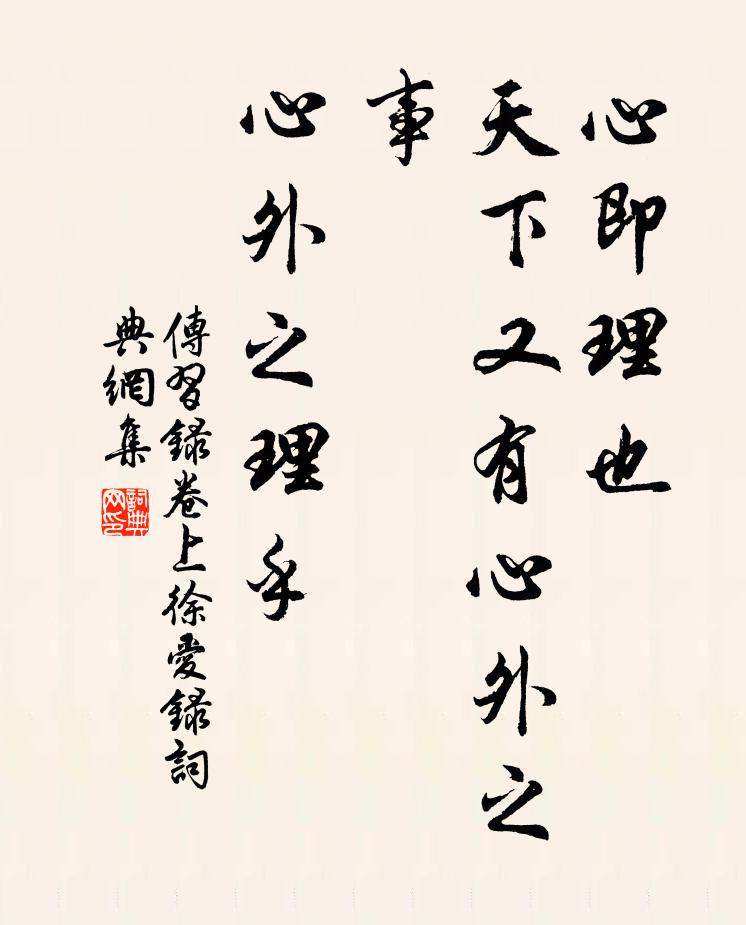 心即理也
天下又有心外之
事
心外之理乎
傳習録卷上徐愛録詞
典網集
詞典
网印